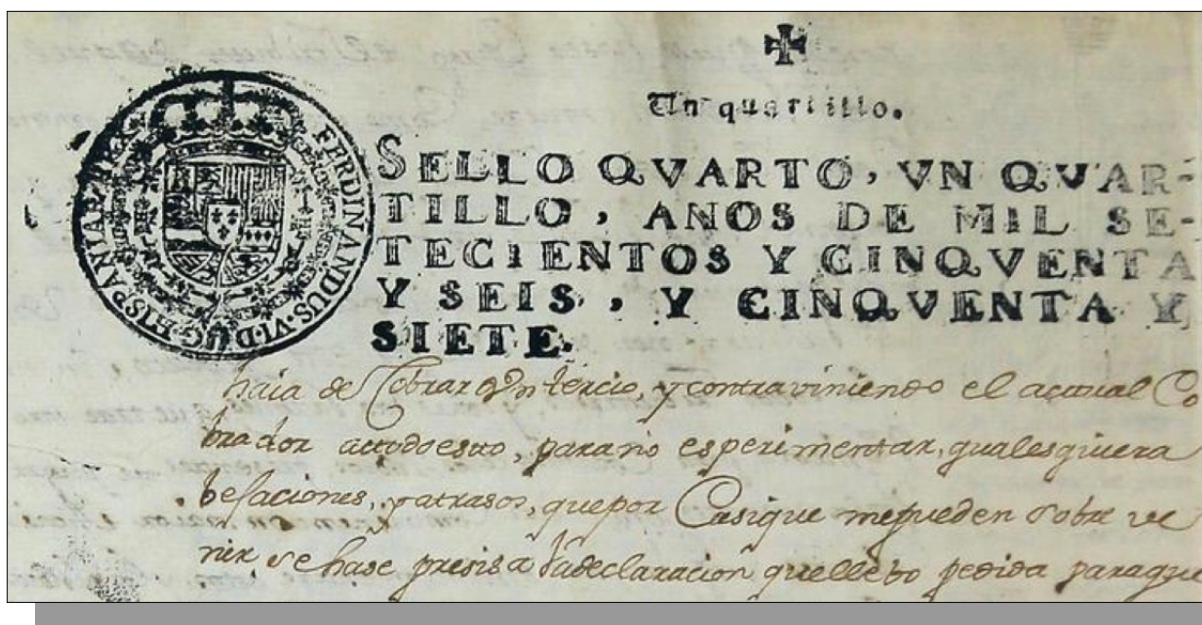 Un quartillo.
FERDINANDUS·VI·D·G·HISPANIAR·REX
SELLO QVARTO, VN QVAR-
TILLO, ANOS DE MIL SE-
TECIENTOS Y CINQVENTA
Y SEIS, Y CINQVENTA Y
SIETE.
haia de Cobrar tercio, y contraviniendo el actual Co
brador a todo esto, para no esperimentar, qualesquiera
besaciones, y atrasos, que por Casique me pueden sobre ve
nir se hase presisa la declaracion que llebo pedida para que